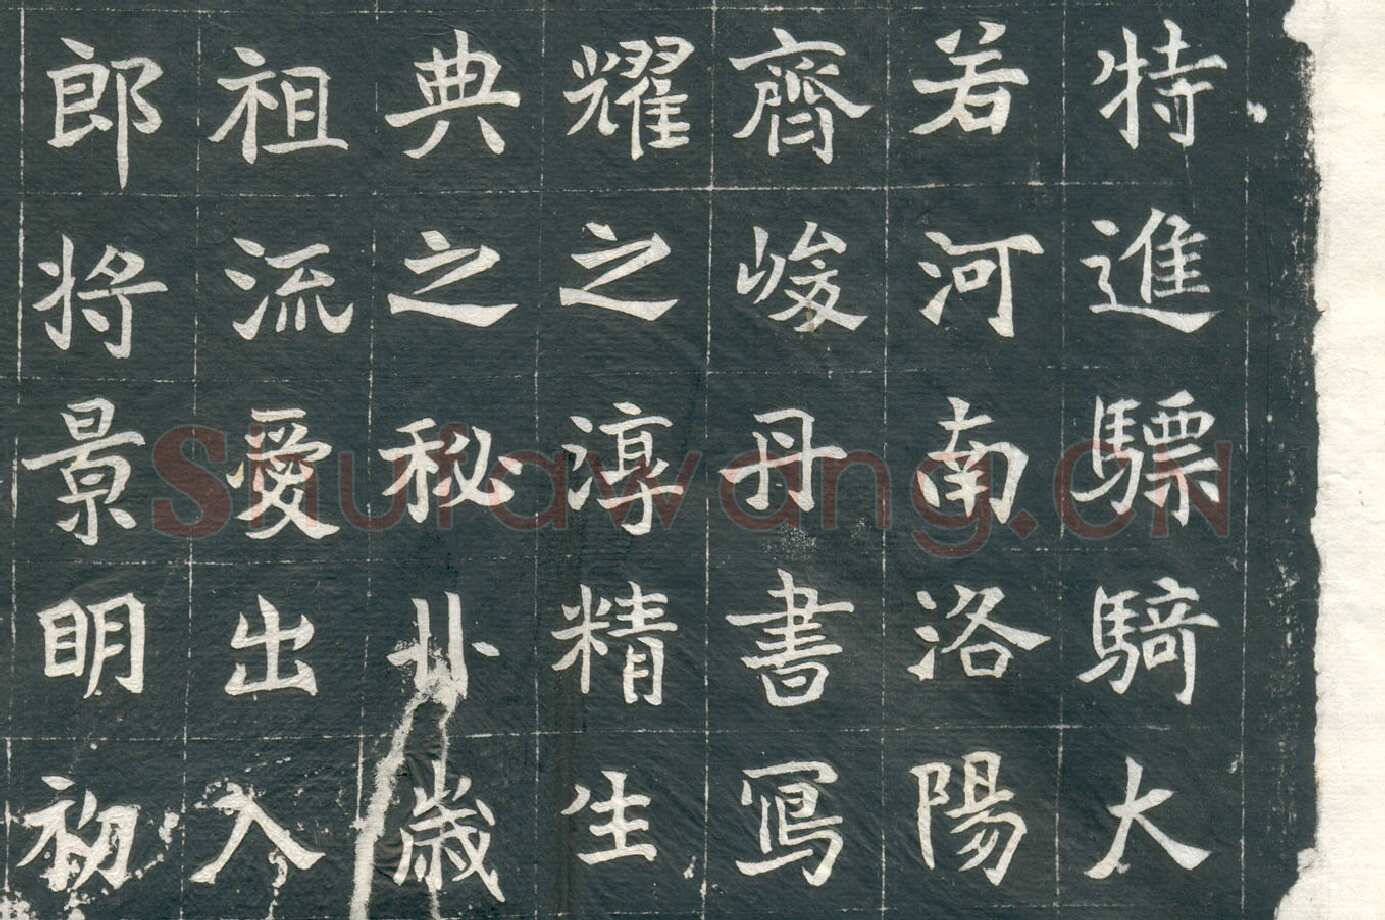 特進驃騎大
若河南洛陽
齊峻丹書寫
耀之淳精生
典之秘丱歲
祖流愛出入
郎將景明初
Shufawang.CN